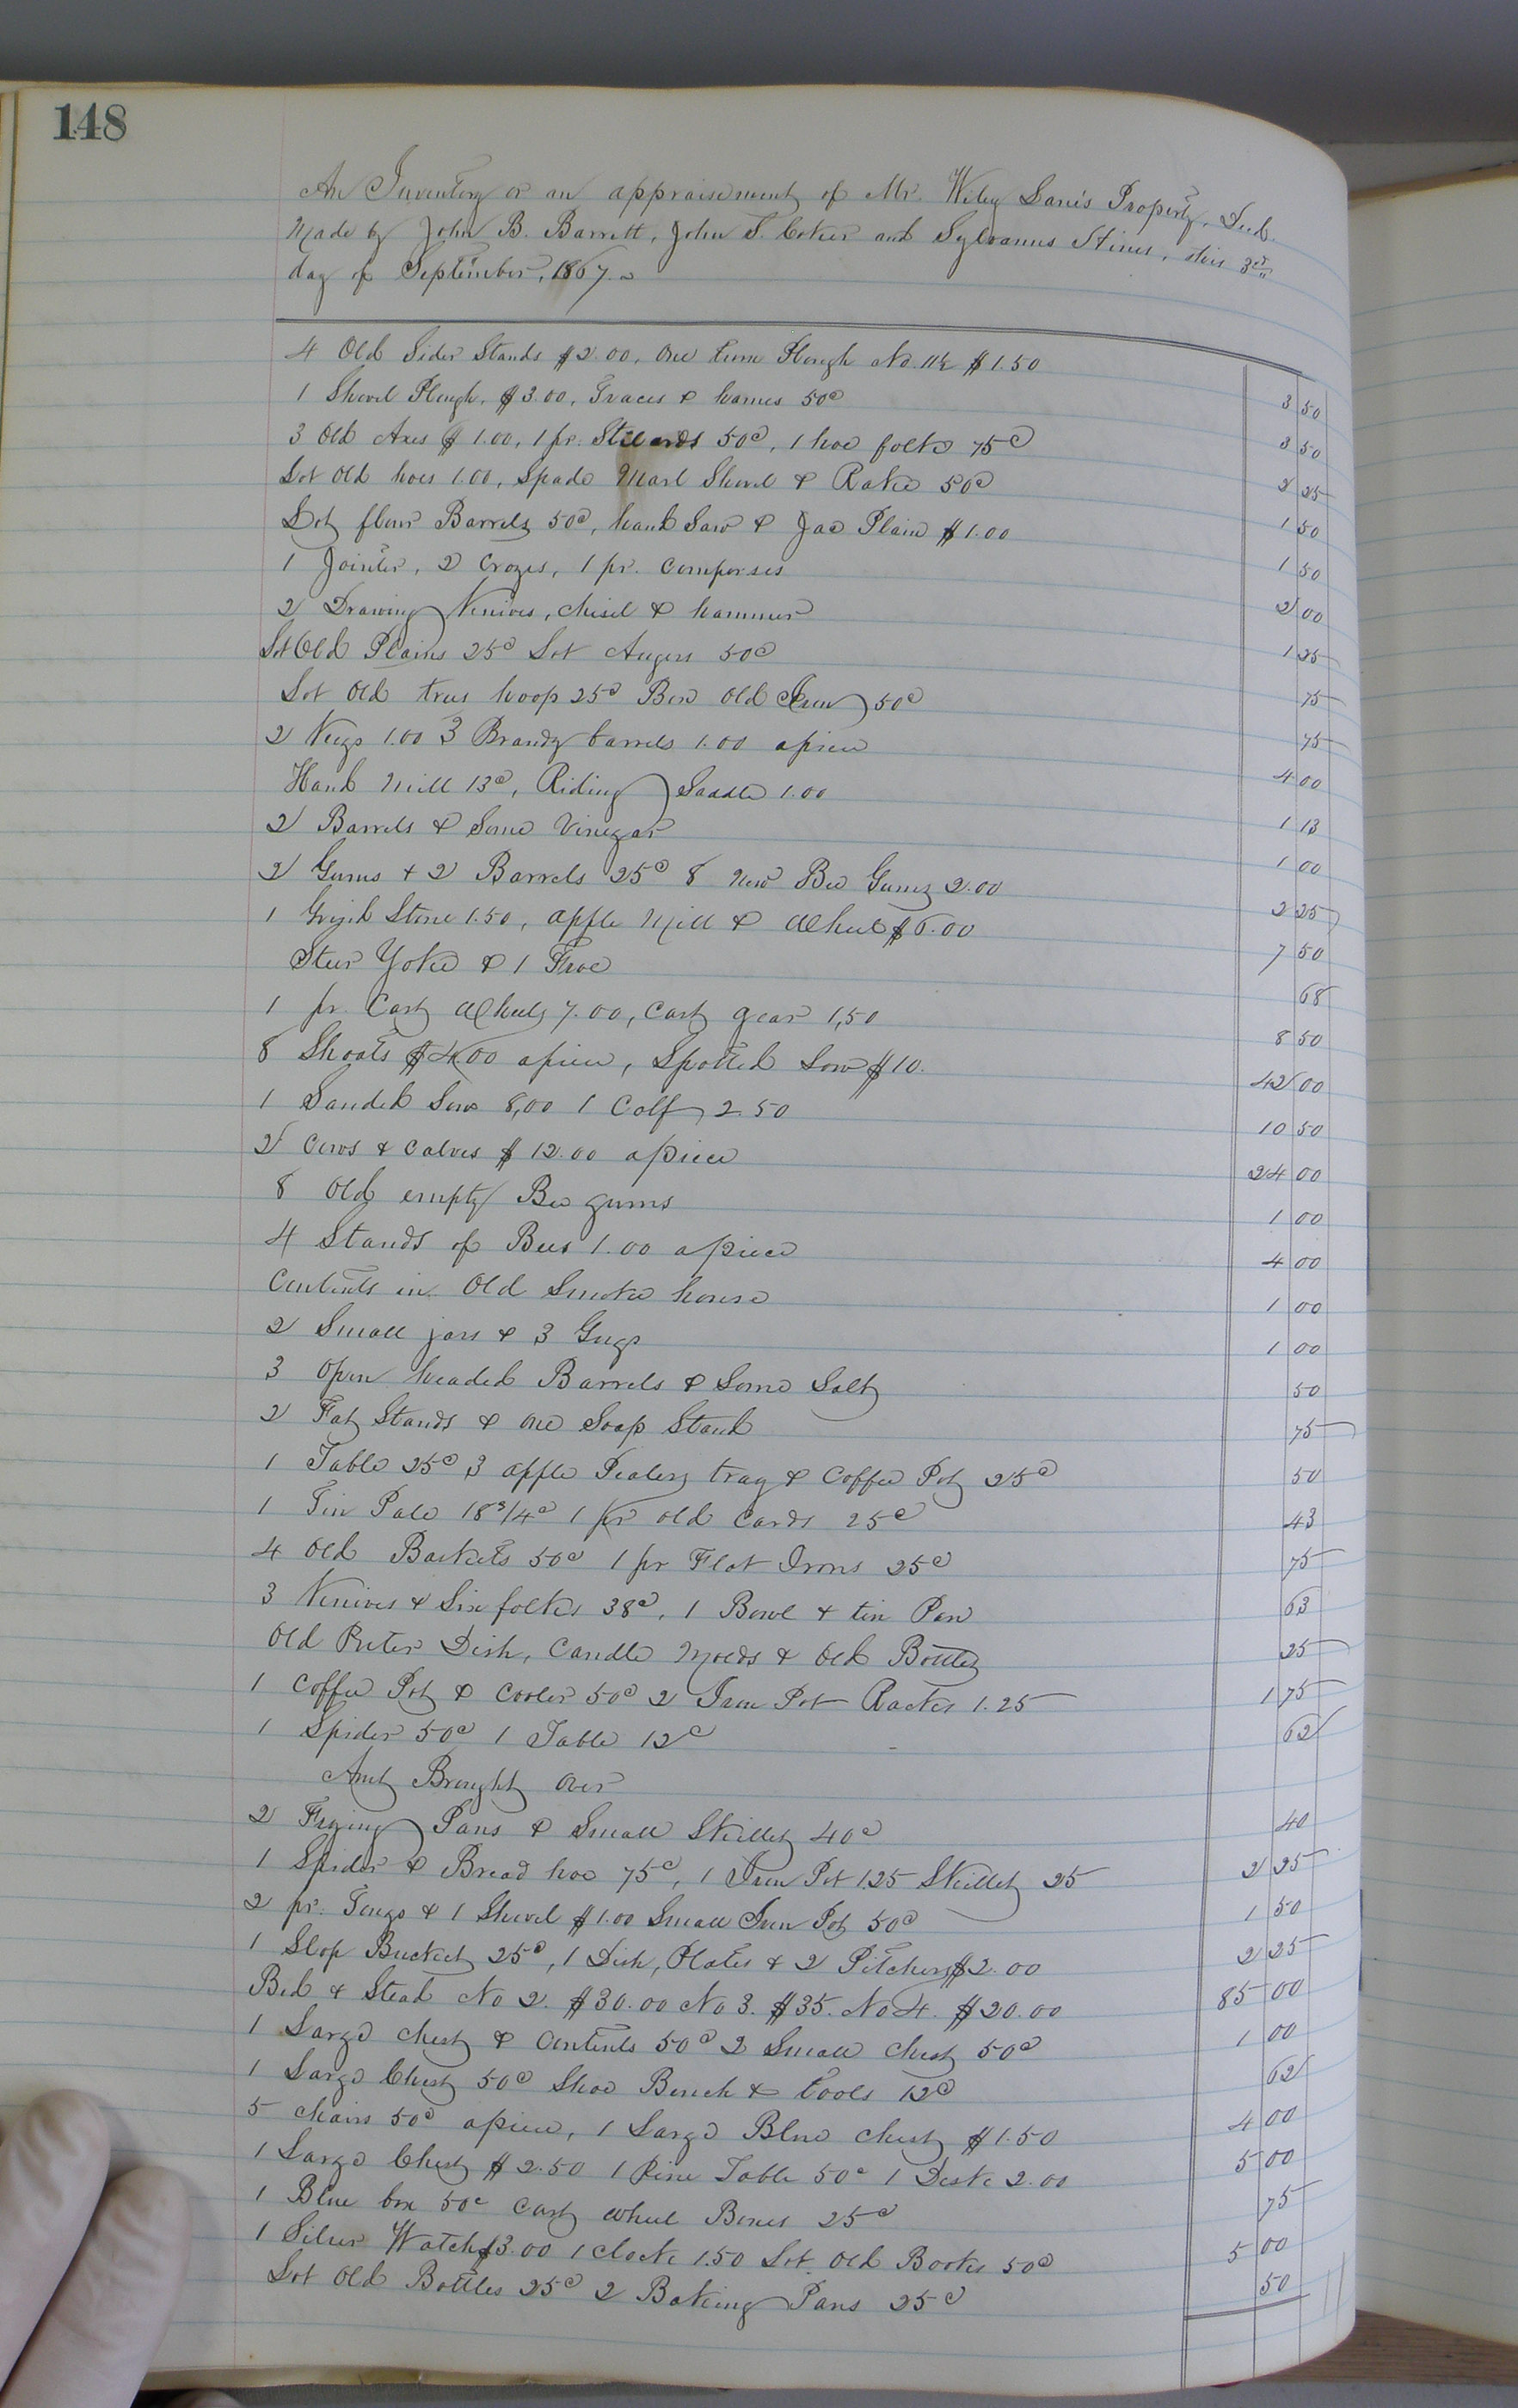 148
An Inventory or an appraisement of Mr. Wiley Lane's Property, Decd.
Made by John B. Barrett, John S. Coker and Sylvanus Stines, this 3rd
day of September, 1867.
4 Old Sider Stands $2.00, One turn Plough No. 11½ $1.50 3 50
1 Shovel Plough, $3.00, Traces & hames 50c 3 50
3 Old Axes $1.00, 1 pr. Stilards 50c, 1 hoe folke 75c 2 25
Lot Old hoes 1.00, Spade Marl Shovel & Rake 50c 1 50
Lot flour Barrels 50c, hand Saw & Jac Plain $1.00 1 50
1 Jointer, 2 Crozes, 1 pr. Comperses 2 00
2 Drawing Knives, Chisel & hammer 1 25
Lot Old Plains 25c Lot Augers 50c 75
Lot Old trus hoop 25c Box Old Iron 50c 75
2 Kegs 1.00 3 Brandy barrels 1.00 apiece 4 00
Hand Mill 13c, Riding Saddle 1.00 1 13
2 Barrels & Some Vinegar 1 00
2 Gums + 2 Barrels 25c 8 New Bee Gums 2.00 2 25
1 Grind Stone 1.50, apple Mill & Wheel $6.00 7 50
Steer Yoke & 1 Froe 68
1 pr. Cart Wheels 7.00, Cart gear 1,50 8 50
8 Shoats $4.00 apiece, Spotted Sow $10. 42 00
1 Sanded Sow 8,00 1 Calf 2.50 10 50
2 Cows & Calves $12.00 apiece 24 00
8 Old empty Bee gums 1 00
4 Stands of Bees 1.00 apiece 4 00
Contents in Old Smoke house 1 00
2 Small jars & 3 Gugs 1 00
3 Open headed Barrels & Some Salt 50
2 Fat Stands & One Soap Stand 75
1 Table 25c 3 apple Pealers tray & Coffee Pot 25c 50
1 Tin Pale 18 3/4c 1 pr old Cards 25c 43
4 Old Baskets 50c 1 pr Flat Irons 25c 75
3 Knives & Six folkes 38c, 1 Bowl & tin Pan 63
Old Puter Dish, Candle Molds & Old Bottles 25
1 Coffee Pot & Cooler 50c 2 Iron Pot Rackes 1.25 1 75
1 Spider 50c 1 Table 12c 62
Amt Brought Over
2 Frying Pans & Small Skillet 40c 40
1 Spider & Bread hoe 75c, 1 Iron Pot 1.25 Skillet 25 2 25
2 pr. Tongs & 1 Shovel $1.00 Small Iron Pot 50c 1 50
1 Slop Bucket 25c, 1 Dish, Plates & 2 Pitchers $2.00 2 25
Bed & Stead No 2. $30.00 No 3. $35. No 4. $20.00 85 00
1 Large Chest & Contents 50c 2 Small Chest 50c 1 00
1 Large Chest 50c Shoe Bench & tools 12c 62
5 Chairs 50c apiece, 1 Large Blue Chest $1.50 4 00
1 Large Chest $2.50 1 Pine Table 50c 1 Deske 2.00 5 00
1 Blue box 50c Cart wheel Boxes 25c 75
1 Silver Watch $3.00 1 Clocke 1.50 Lot Old Bookes 50c 5 00
Lot Old Bottles 25c 2 Baking Pans 25c 50